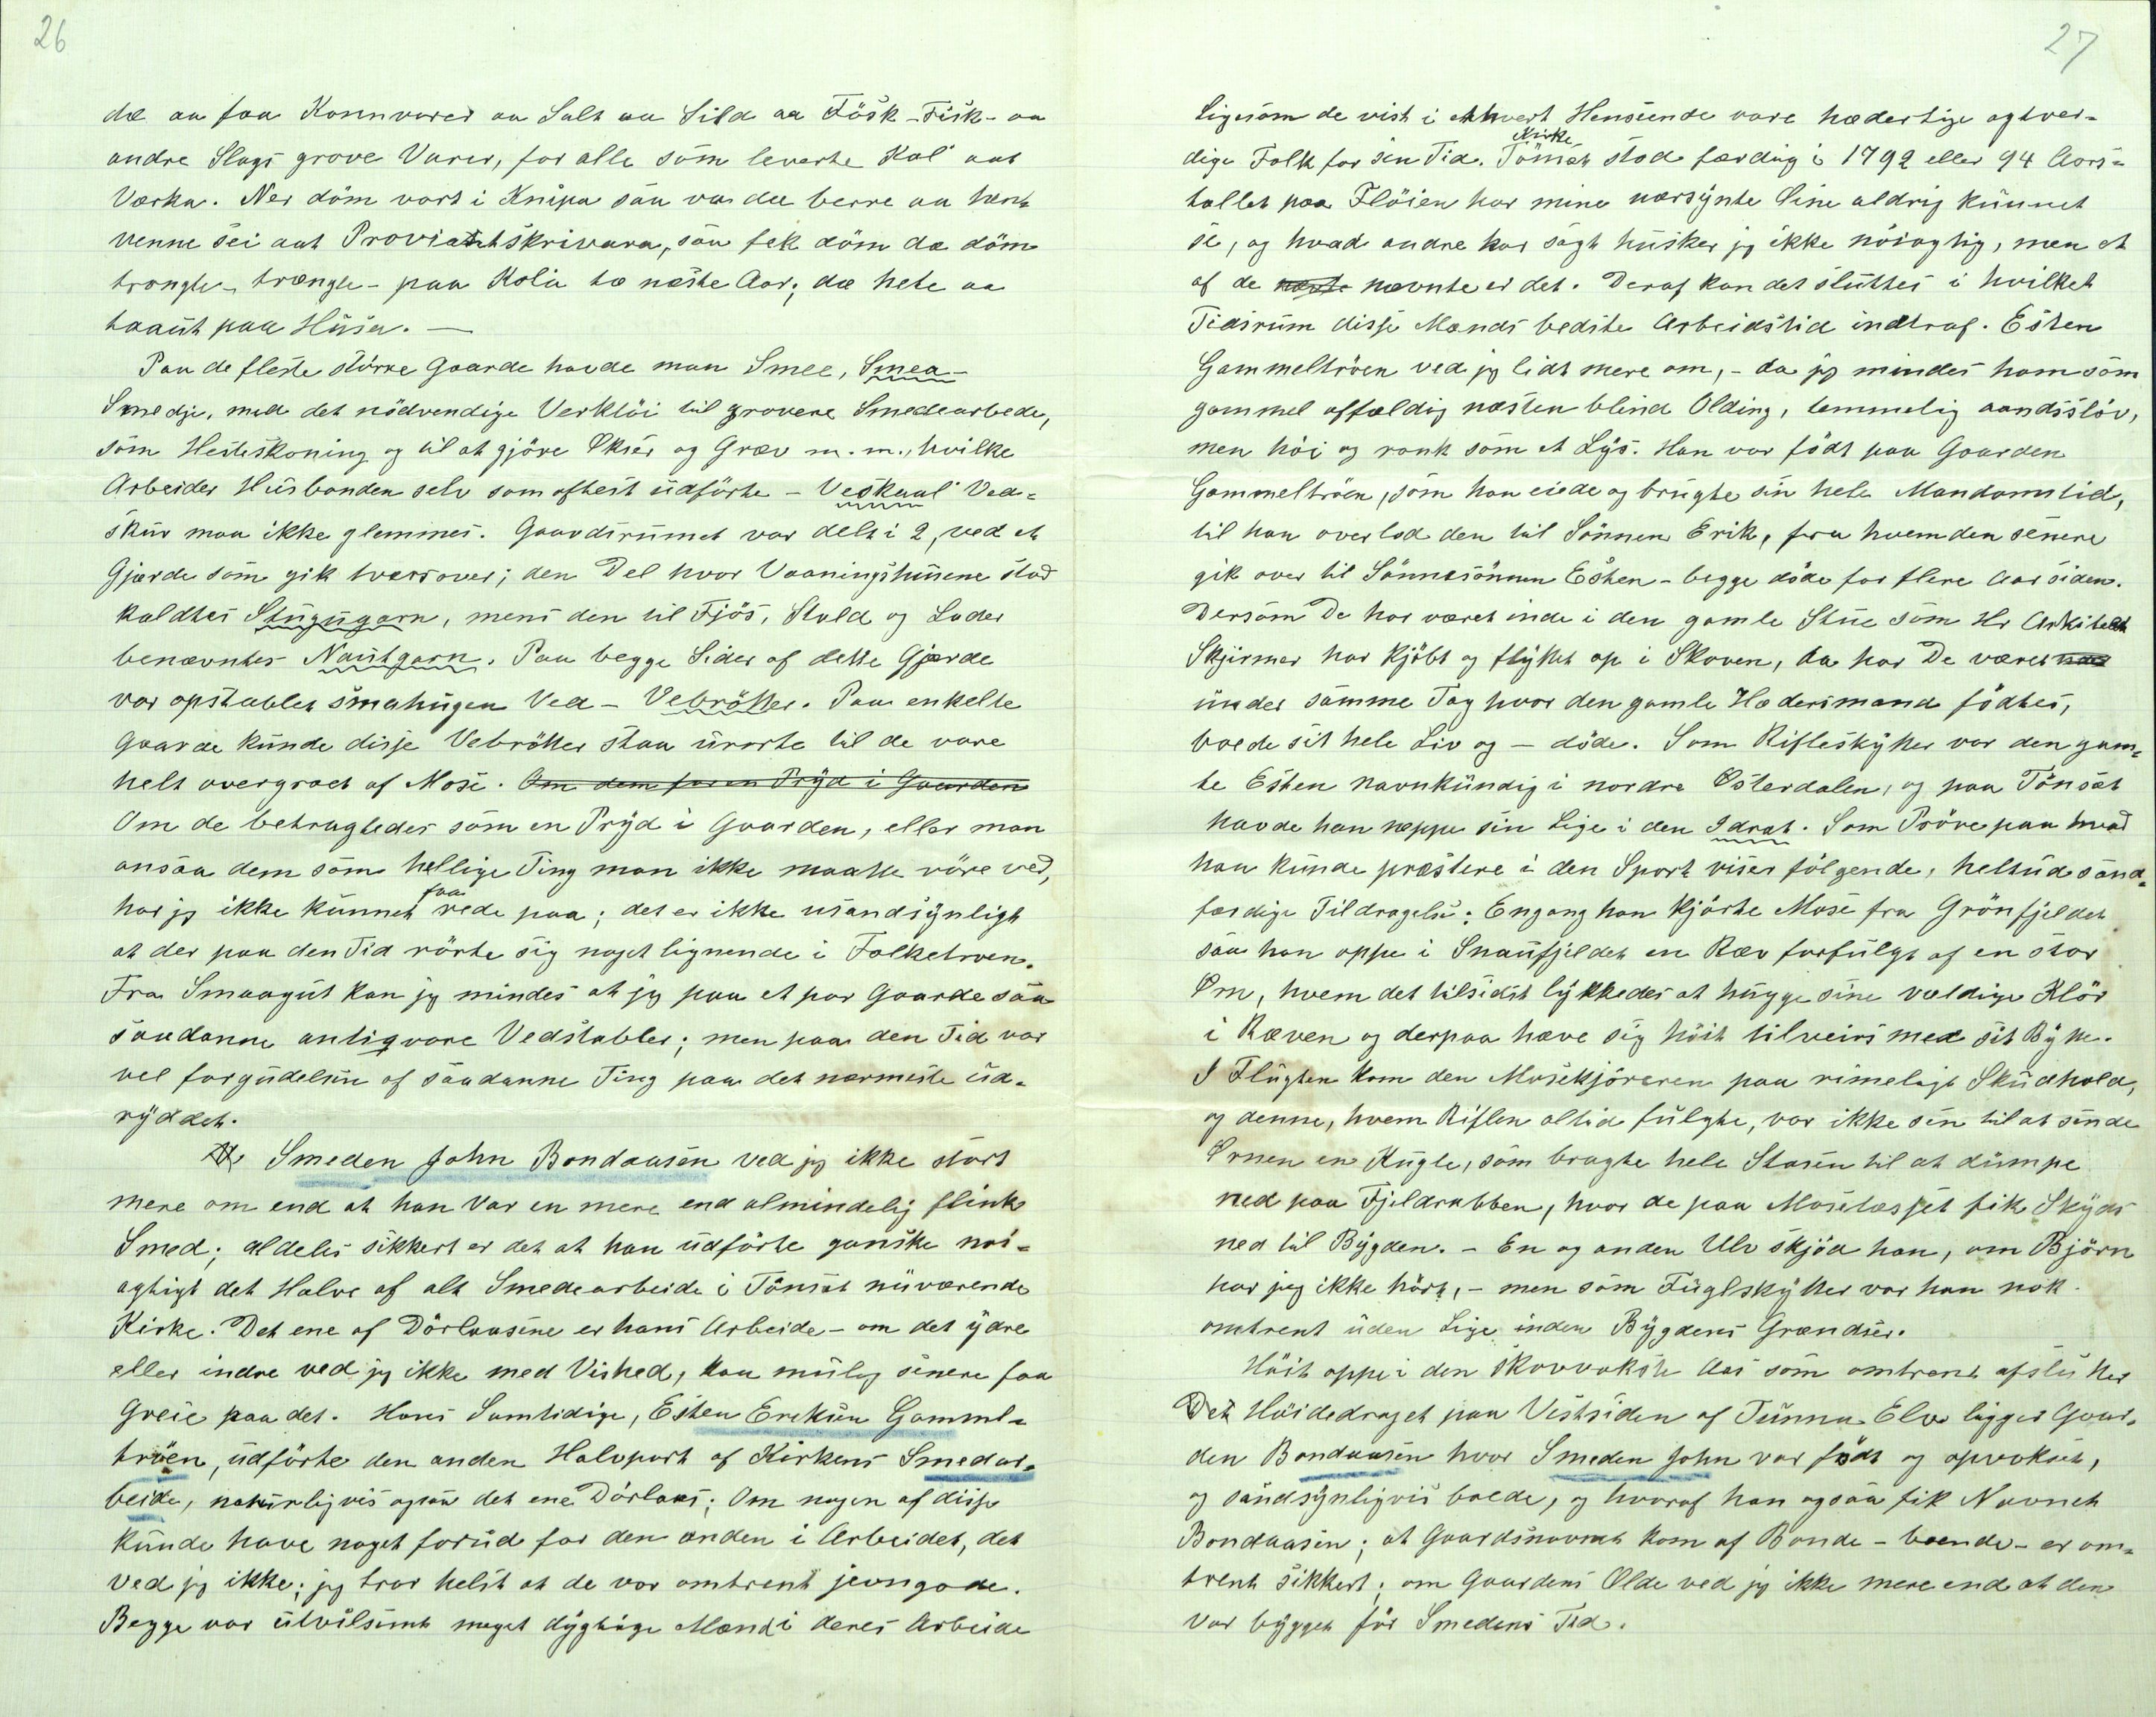 26
dæ aa faa Konnvarer aa Salt aa Sild aa Fösk - Fisk - aa
andre Slags grove Varer, for alle som leverte Kol aat
Værka. Ner döm vart i Knipa saa va dæ berre aa hent
venne sei aat Proviantskrivara, saa fek döm dæ döm
trongte - trængte - paa Kolia te næste Aar; dæ hete aa
taaut paa Husa. —
Paa de fleste större Gaarde havde man Smee, Smea -
Smedje, med det nödvendige Verktöi til grovere Smedearbede,
som Hesteskoning og til at gjöre Økser og Græv m. m., hvilke
Arbeider Husbonden selv som oftest udförte - Veskaal Ved=
skur maa ikke glemmes. Gaardsrumet var delt i 2, ved et
Gjærde som gik tværsover; den Del hvor Vaaningshusene stod
kaldtes Stugugarn, mens den til Fjös, Stald og Lader
benævntes Nautgarn. Paa begge Sider af dette Gjærde
var opstablet smahugen Ved - Vebrötter. Paa enkelte
Gaarde kunde disse Vebrötter staa urørte til de vare
helt overgroet af Mose. Om dem for en Pryd i Gaarden
Om de betragtedes som en Pryd i Gaarden, eller man
ansaa dem som hellige Ting man ikke maatte röre ved,
har jg ikke kunnet faa rede paa; det er ikke usandsynligt
at der paa den Tid rörte sig noget lignende i Folketroen.
Fra Smaagut kan jg mindes at jg paa et par Gaarde saa
saadanne antiqvare Vedstabler; men paa den Tid var
vel forgudelsen af saadanne Ting paa det nærmeste ud=
ryddet.
Smeden John Bondaasen ved jg ikke stort
mere om end at han var en mere end almindelig flink
Smed; aldeles sikkert er det at han udförte ganske nöi=
agtigt det Halve af alt Smedearbeide i Tönset nuværende
Kirke. Det ene af Dörlaasene er hans Arbeide - om det ydre
eller indre ved jg ikke med Vished, kan mulig senere faa
Greie paa det. Hans Samtidige, Esten Ereksen Gammel=
tröen, udförte den anden Halvpart af Kirkens Smedar=
beide, naturligvis ogsaa det ene Dörlaas; Om nogen af disse
kunde have noget forud for den anden i Arbeidet, det
ved jg ikke; jg tror helst at de var omtrent jevngode.
Begge var utvilsomt meget dygtige Mænd i deres Arbeide
27
ligesom de vist i ethvert Henseende vare hæderlige agtver=
dige Folk for sin Tid. Tönset Kirke stod færdig i 1792 eller 94 Aars=
tallet paa Flöien har mine nærsynte Öine aldrig kunnet
se, og hvad andre har sagt husker jg ikke nöiagtig, men et
af de næste nævnte er det. Deraf kan det sluttes i hvilket
Tidsrum disse Mænds bedste Arbeidstid indtraf. Esten
Gammeltröen ved jg lidt mere om, - da jg mindes ham som
gammel affældig næsten blind Olding, temmelig aandsslöv,
men höi og rank som et Lys. Han var födt paa Gaarden
Gammeltröen, som han eiede og brugte sin hele Mandomstid,
til han overlod den til Sönnen Erik, fra hvem den senere
gik over til Sönnesönnen Esten - begge döde for flere Aar siden.
Dersom De har været inde i den gamle Stue som Hr Arkitekt
Skjirmer har kjöbt og flyttet op i Skoven, da har De været
under samme Tag hvor den gamle Hædersmand fødtes,
boede sit hele Liv og - döde. Som Rifleskytter var den gam=
le Esten navnkundig i nordre Østerdalen, og paa Tönset
havde han neppe sin Lige i den Idræt. Som Pröve paa hvad
han kunde præstere i den Sport viser fölgende, heltud sand=
færdige Tildragelse: Engang han kjörte Mose fra Grönfjeldet
saa han oppe i Snaufjeldet en Ræv forfulgt af en stor
Ørn, hvem det tilsidst lykkedes at hugge sine vældige Klör
i Ræven og derpaa hæve sig höit tilveirs med sit Bytte.
I Flugten kom den Mosekjöreren paa rimeligt Skudhold,
og denne, hvem Riflen altid fulgte, var ikke sen til at sende
Ørnen en Kugle, som bragte hele Stasen til at dumpe
ned paa Fjeldrabben, hvor de paa Moselæsset fik Skyds
ned til Bygden. - En og anden Ulv skjöd han, om Björn
har jeg ikke hört, - men som Fuglskytter var han nok
omtrent uden Lige inden Bygdens Grændser.
Höit oppe i den skovvokste Aas som omtrent afslutter
Det Höidedraget paa Vestsiden af Tunna Elv ligger Gaar=
den Bondaasen hvor Smeden John var födt og opvokset,
og sandsynligvis boede, og hvoraf han ogsaa fik Navnet
Bondaasen; at Gaardsnavnet kom af Bonde - boende - er om=
trent sikkert; om Gaardens Ælde ved jg ikke mere end at den
var bygget för Smedens Tid.